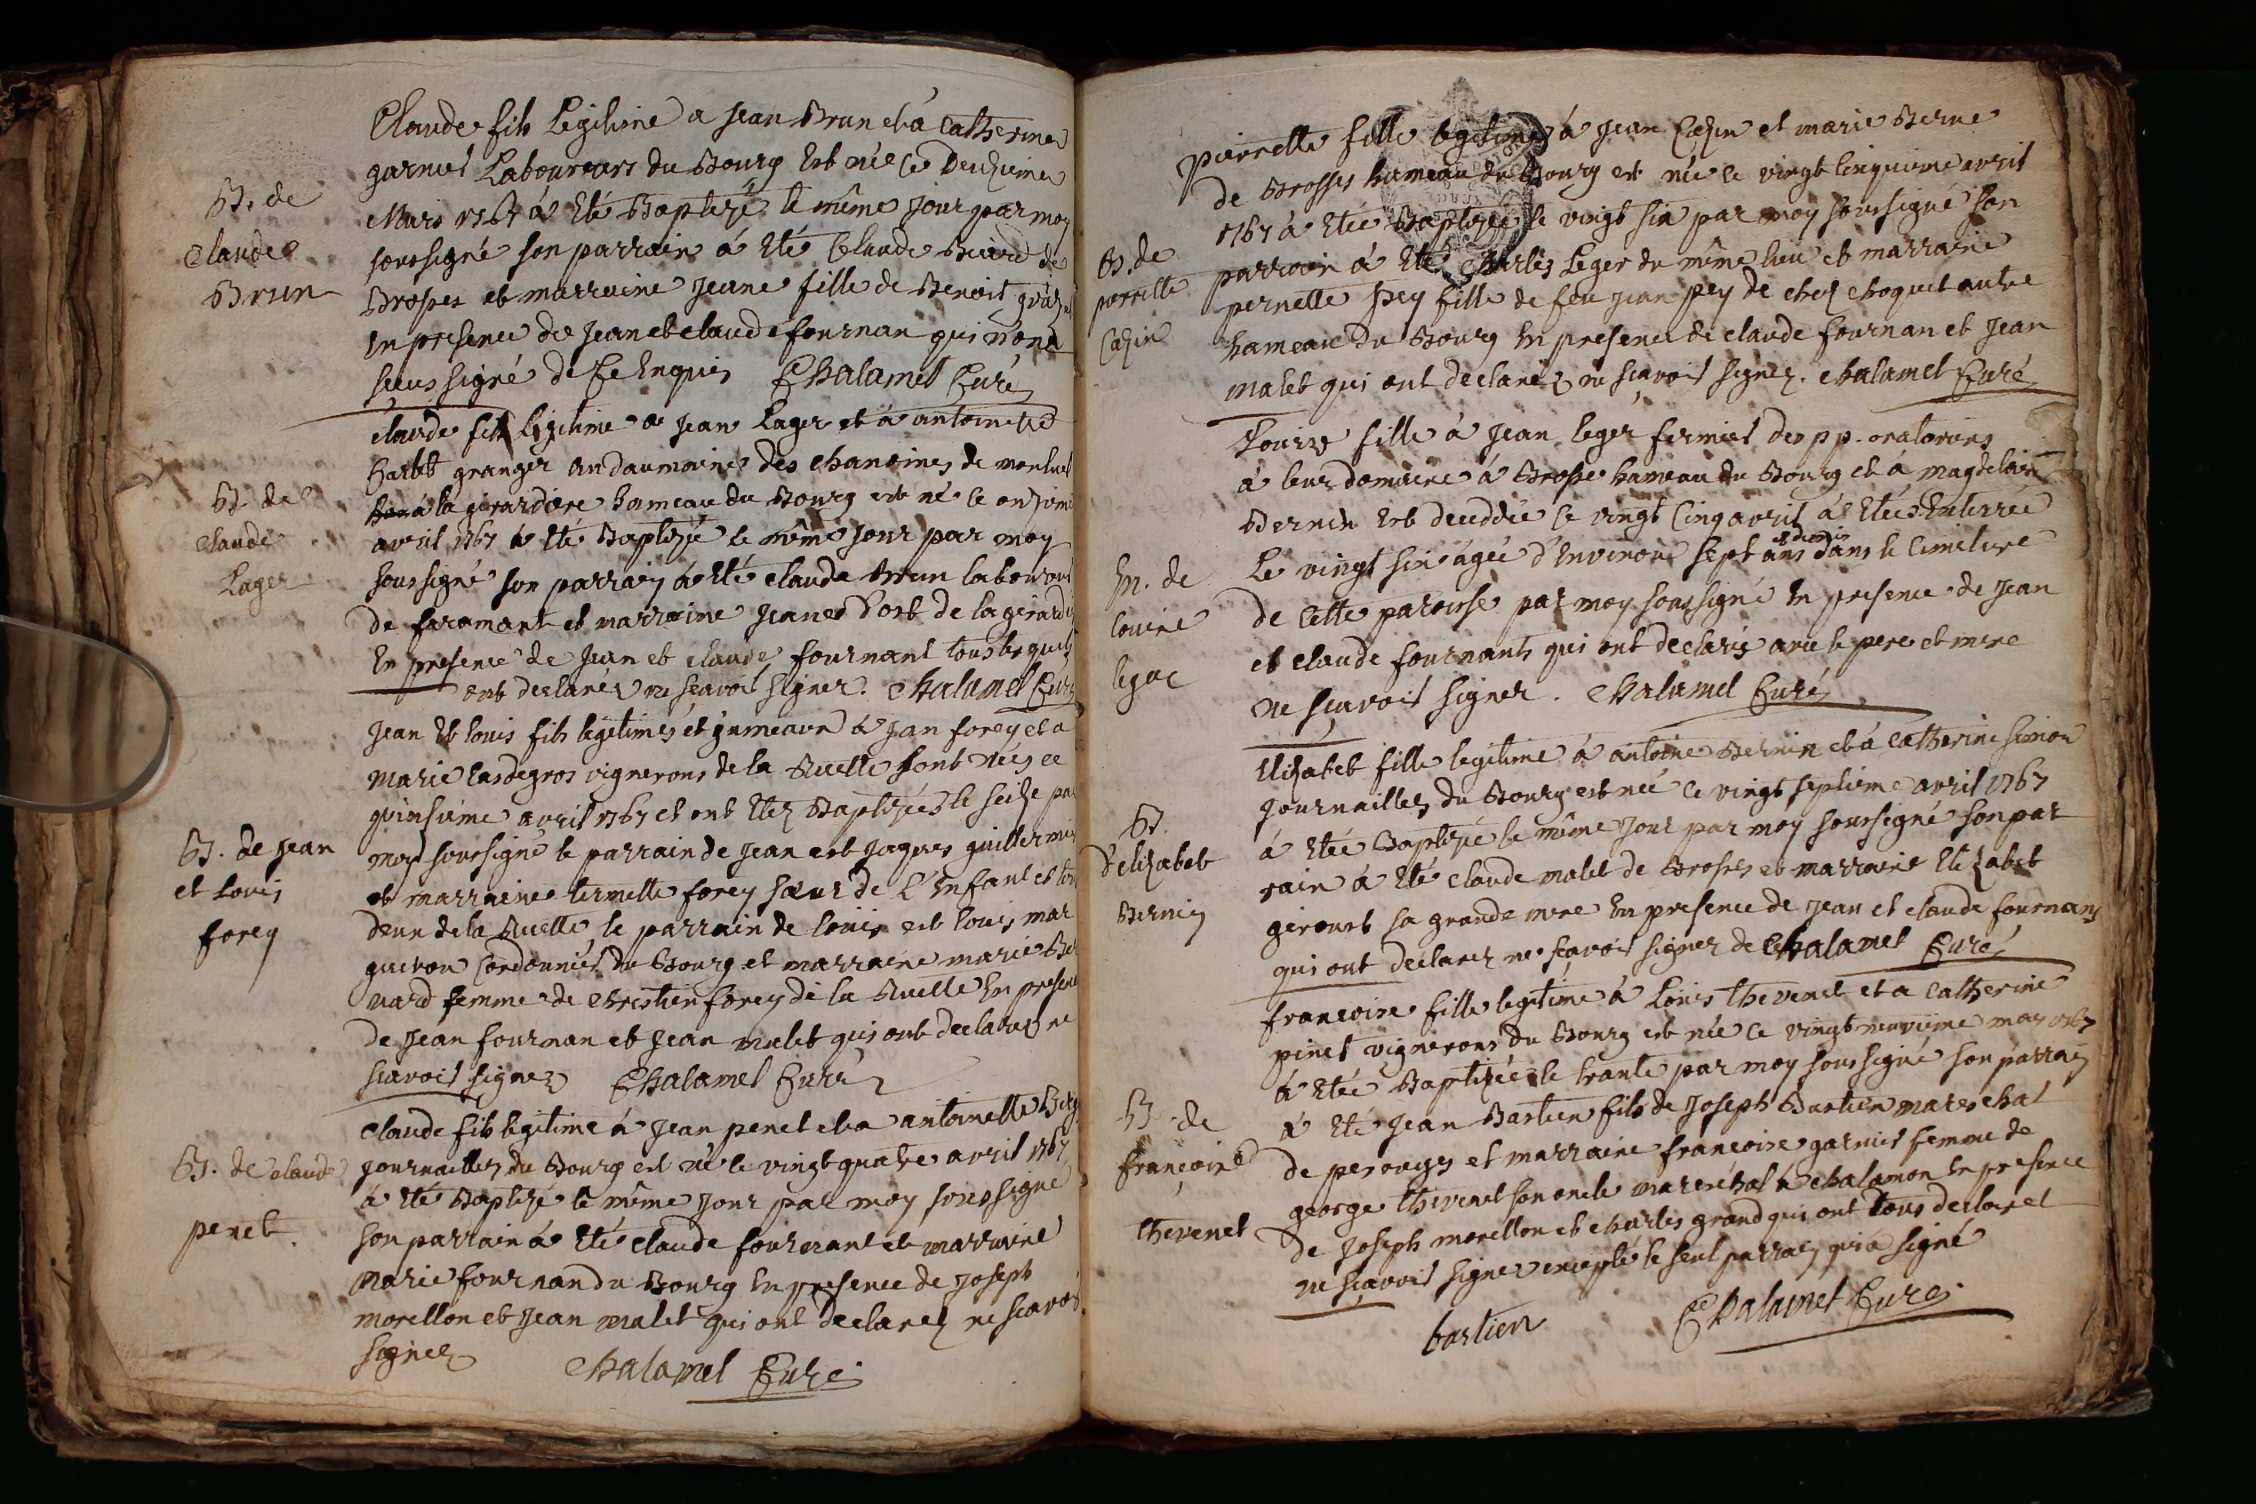 Claude fils Legitime a jean Brun et à Catherine
garnier Laboureurs du Bourg est née ce Deuxieme
Mars 1767 à Eté Baptizé le même jour par moy
B. de
Claude
Brun
soussigné son parrain à Eté Claude de
Brosses et marraine jeane fille de Benoit
En presence de jean et claude fournan qui n'ont
sceus signé de Ce Enquis Chalamel Curé
claude fils Legitime a jean Lager et à antoinette
granger au daumaine des chanoines de monluel
B. de
claude
Lager
à la girardiere hameau du Bourg est né ce onzieme
avril 1767 à Eté Baptizé le même jour par moy
soussigné son parrain à Eté claude Brun laboureur
de faramant et marraine jeane de la girardi
En presence de jean et claude fournant tous les quels
ont declarez ne scavoir signer. Chalamel Curé
jean Et louis fils legitimes et jumeaux à jan forey et a
marie lasdegros vignerons de la Ruelle sont nées ce
quinsieme avril 1767 et ont Etez Baptizées le seize par
B. de jean
et louis
forey
moy soussigné le parrain de jean est jaques guillermin
et marraine forey sœur de L'Enfant et tous
deux de la Ruelle le parrain de louis est louis mar
gueron Cordonnier du Bourg et marraine marie Ber
nard femme de chrestien forey de la Ruelle En presence
de jean fournan et jean malet qui ont declarez ne
scavoir signer Chalamel Curé
Claude fils legitime à jean penet et a antoinette
B. de claude
penet.
journaillers du Bourg est né le vingt quatre avril 1767
à Eté Baptizé le même jour par moy soussigné
son parrain à Eté claude fournant et marraine
marie fournan du Bourg En presence de joseph
morellon et jean malet qui ont declarez ne scavoir
signer Chalamel Curé
Pierrette fille legitime à jean Cazin et marie Berne
de Brosses hameau du Bourg est née ce vingt cinquieme avril
1767 à Etée Baptizée le vingt six par moy soussigné son
B. de
pierrette
Cazin
parrain à Eté Charles Leger du même lieu et marraine
pernette pey fille de feu jean pey de chez choquet autre
hameau du Bourg En presence de claude fournan et jean
malet qui ont declarez ne scavoir signez. Chalamel Curé
Louise fille à jean leger fermier des pp. oratoriens
à leur domaine à Brosse hameau du Bourg et à magdelaine
Bernin est deceddée ce vingt Cinq avril à Etée Enterrée
En. de
louise
leger
Le vingt six agée d'Environ sept ans et demis dans le Cimetiere
de Cette paroisse par moy soussigné En presence de jean
et claude fournants qui ont declaris avec le pere et mere
ne scavoir signer. Chalamel Curé
Elizabet fille legitime à antoine Bernin et à Catherine simon
journailler du Bourg est née ce vingt septieme avril 1767
B.
d'elizabet
Bernin
à Etée Baptizée le même jour par moy soussigné son par
rain à Eté claude malet de Brosses et marraine Elizabet
girourt sa grande mere En presence de jean et claude fournans
qui ont declarez ne scavoir signer de Ce Chalamel Curé
françoise fille legitime à Louis thevenet et a Catherine
pinet vignerons du Bourg est née ce vingt neuvieme may 1767
à Etée Baptizée le trante par moy soussigné son parrain
B. de
françoise
thevenet
à Eté jean Bastien fils de joseph Bastien mareschal
de perouges et marraine françoise garnier femme de
george thevenet son oncle mareschal à chalamon En presence
de joseph morellon et charles grand qui ont tous declaret
ne scavoir signer excepté le seul parrain qui a signé
bastien Chalamel Curé